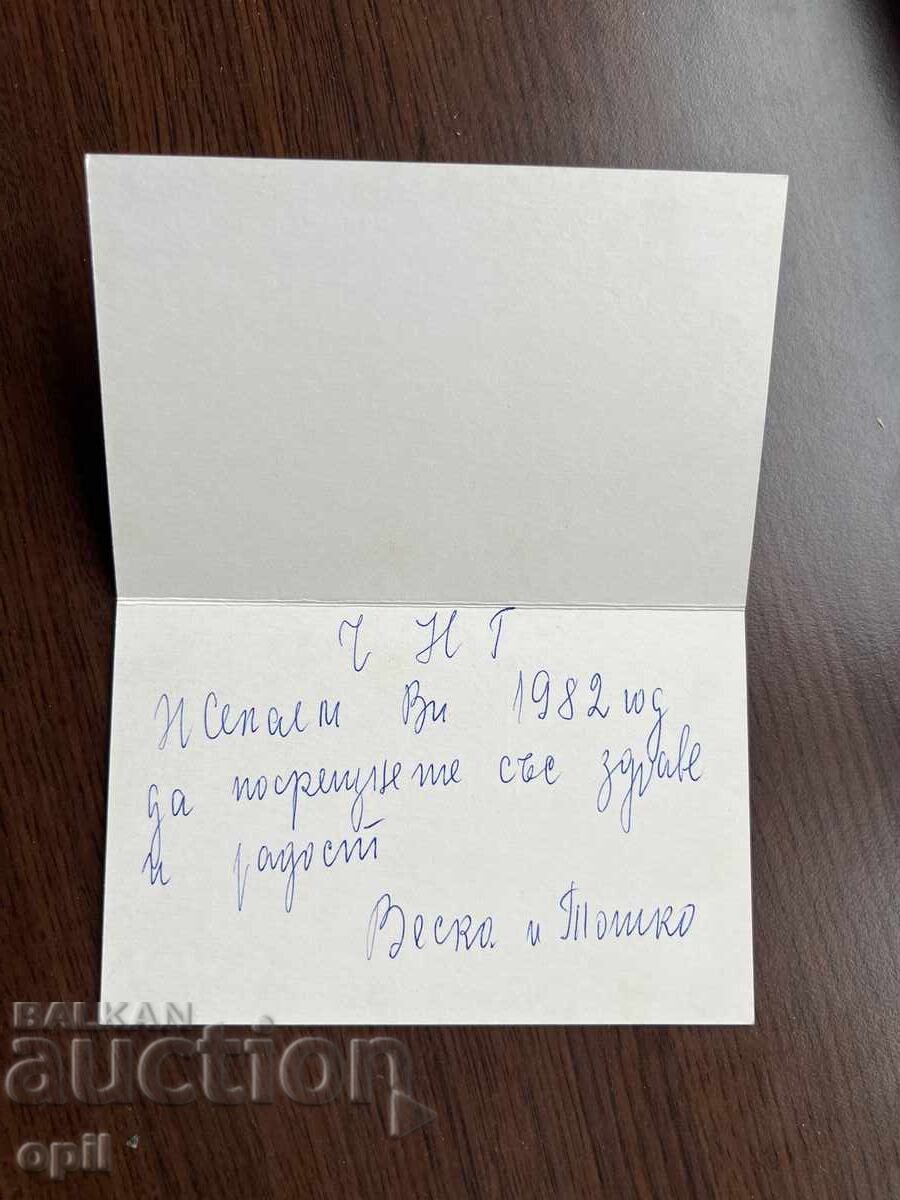 Ч Н Г
Желаем Ви 1982 год
да посрещнете със здраве
и радост
Веска и Тошко
BALKAN
auction
opil